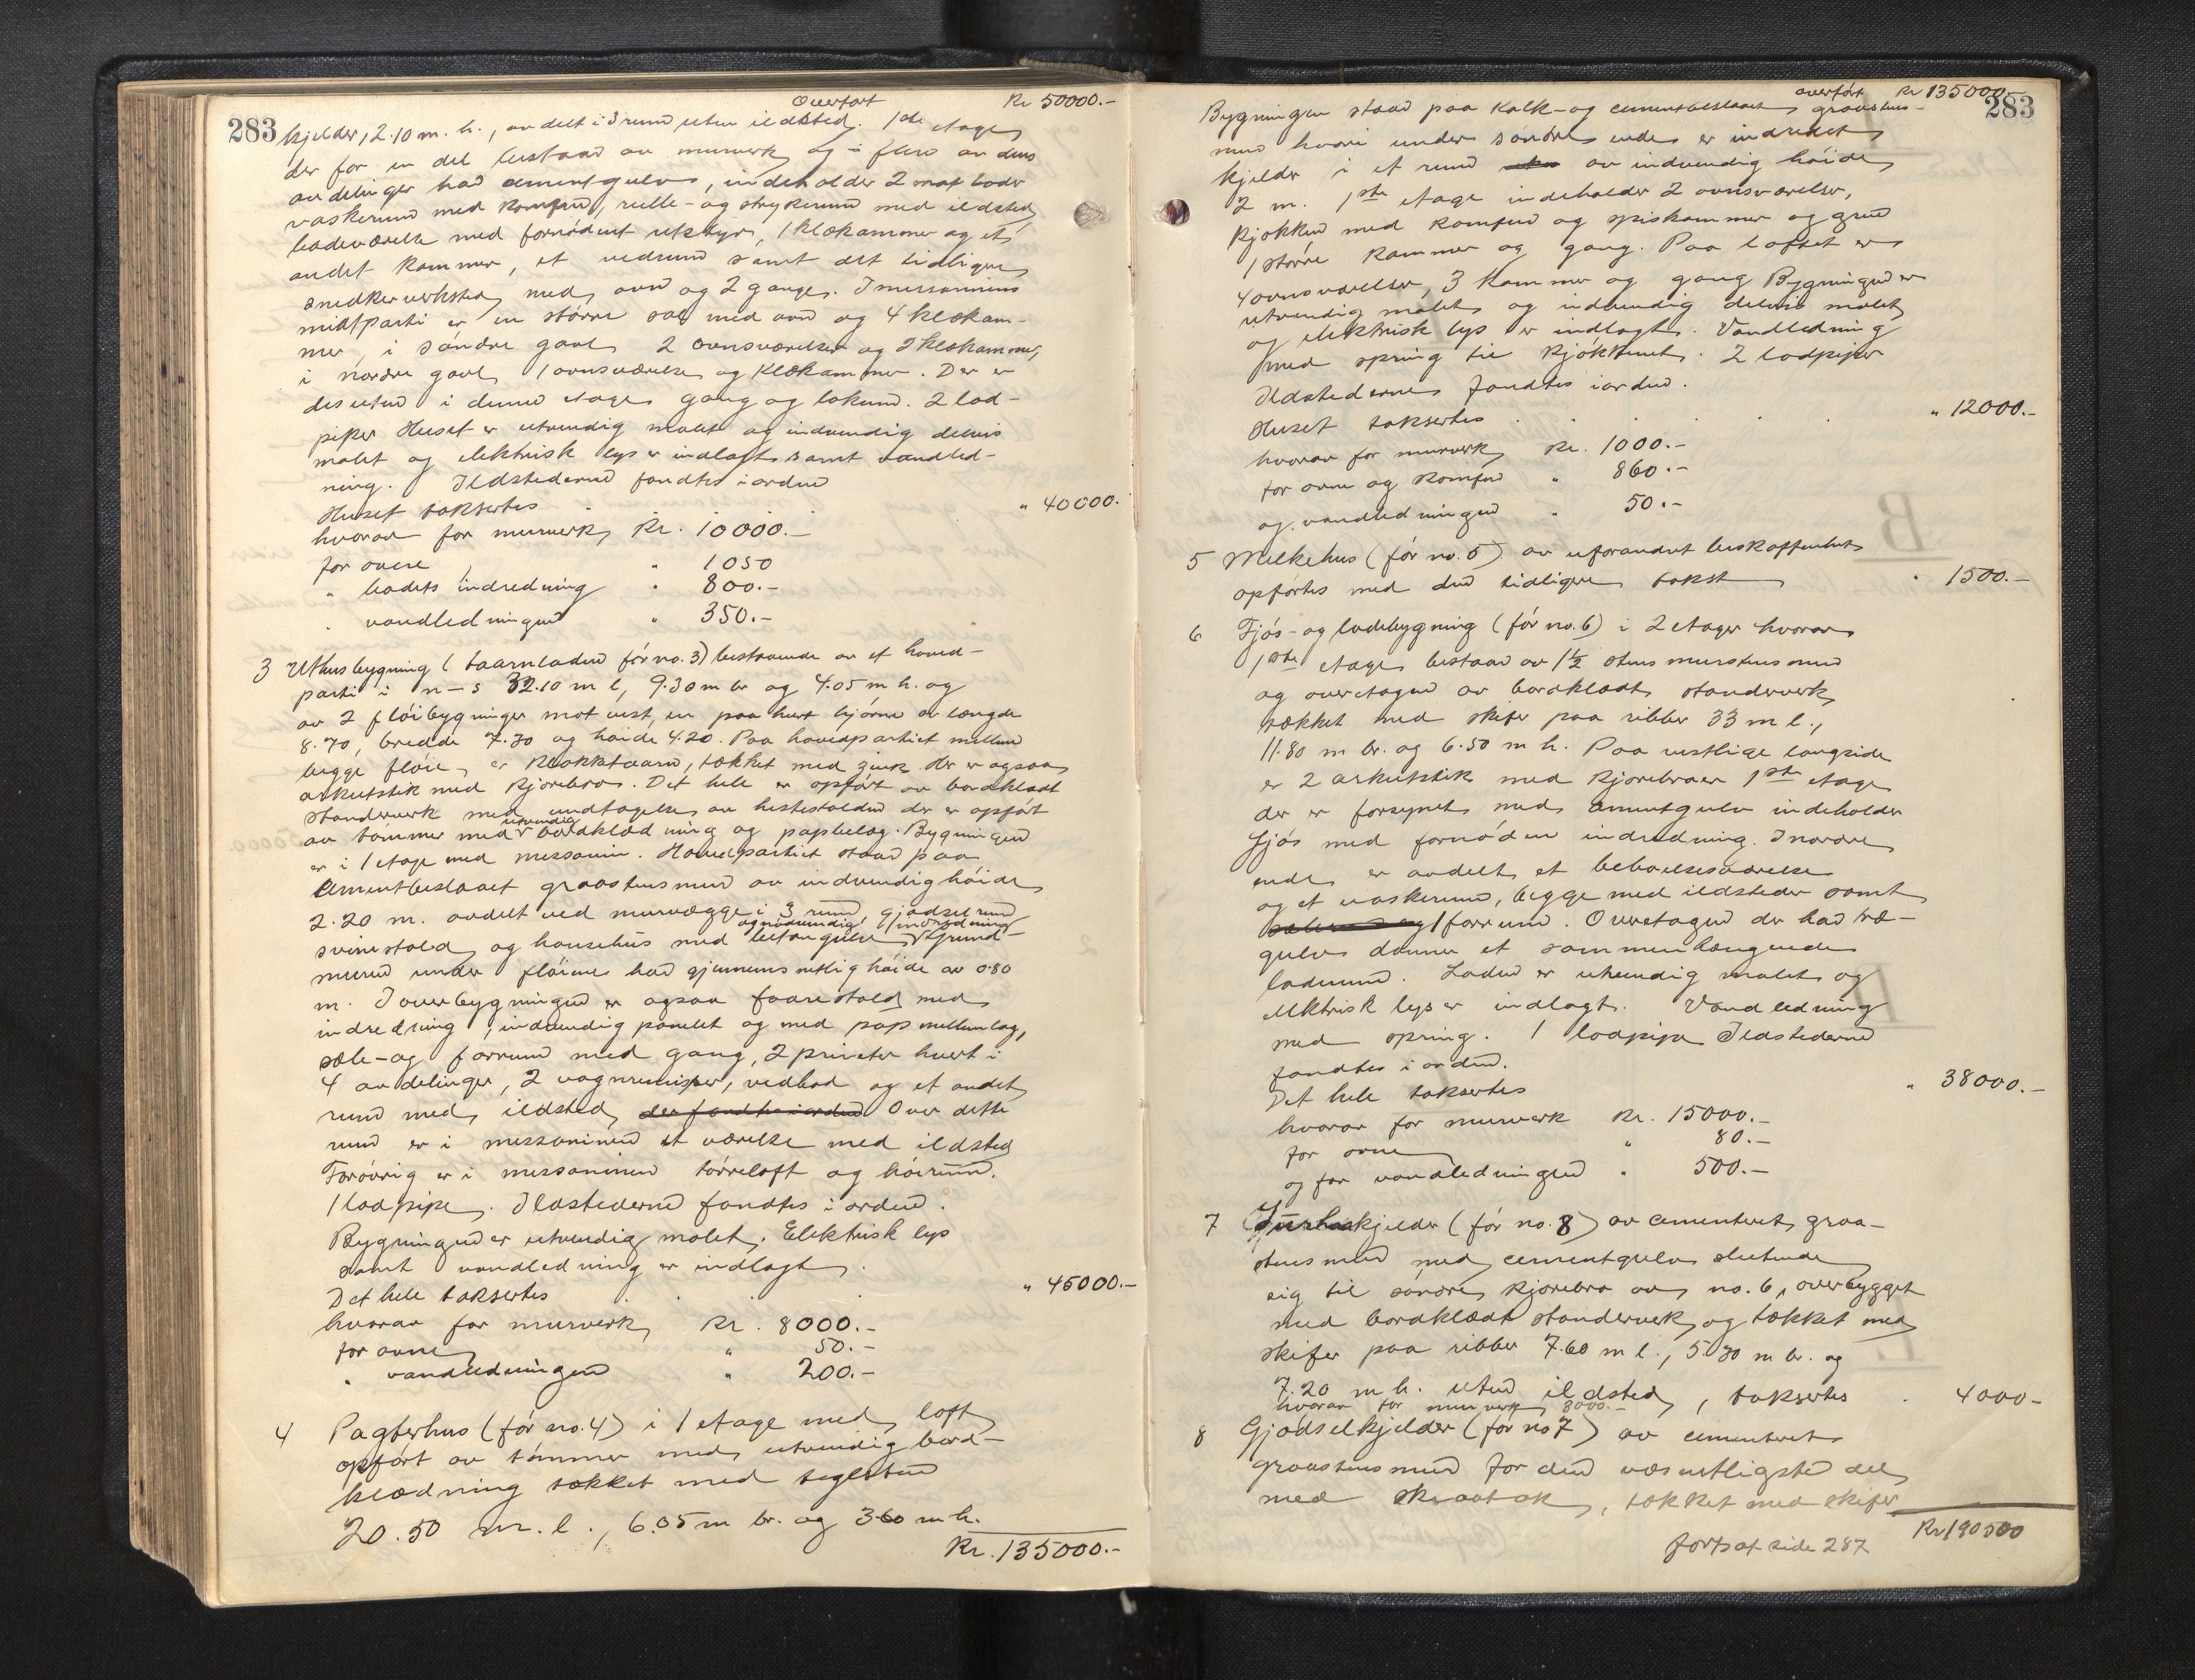 283
Overført Kr 50000.-
kjelder, 2.10 m. h., avdelt i 3 rum uten ildsted. 1ste etage
der for en del bestaar av murverk og i flere av dens
avdelinger har cementgulv, indeholder 2 matboder
vaskerum med komfur, rulle- og strykerum med ildsted,
badeværelse med fornødent utstyr, 1 klækammer og et
andet kammer, et vedrum samt det tidligere
snedkerverksted med ovn og 2 gange. I messaninens
midtparti er en større sal med ovn og 4 klækam-
mer, i søndre gavl 2 ovnsværelser og 2 klækammer,
i nordre gavl 1 ovnsværelse og klækammer. Der er
desuten i denne etage gang og lokum. 2 lod-
piper Huset er utvendig malet og indvendig delvis
malet og elektrisk lys er indlagt samt vandled-
ning. Ildstederne fandtes i orden
Huset takseres " 40000.
hvorav for murverk Kr. 10000.-
for ovne " 1050
" badets indredning " 800.-
" vandledningen " 350.-
3 Uthusbygning (taarnladen før no. 3) bestaaende av et hoved-
parti i n-s 32.10 m l, 9.30 m br og 4.05 m h. og
av 2 fløibygninger mot vest, en paa hvert hjørne av længde
8.70, bredde 7.30 og høide 4.20. Paa hovedpartiet mellem
begge fløie er klokketaarn, tækket med zink. Her er ogsaa
arkutstik med kjørebro. Det hele er opført av bordklædt
standerverk med undtagelse av hestestalden der er opført
av tømmer med utvendig bordklædning og papbelæg. Bygningen
er i 1 etage med messanin. Hovedpartiet staar paa
cementbeslaaet graastensmur av indvendig høide
2.20 m. avdelt ved murvægge i 3 rum, gjødselrum
svinestald og hønsehus med betongulv og nødvendig indredning. Grund-
muren under fløiene har gjennemsnitlig høide av 0.80
m. I overbygningen er ogsaa faarestald med
indredning, indvendig panelet og med pap mellemlag,
sæle- og forrum med gang, 2 priveter hvert i
4 avdelinger, 2 vognremisser, vedbod og et andet
rum med ildsted der fandtes i orden Over dette
rum er i messaninen et værelse med ildsted
Forøvrig er i messaninen tørreloft og høirum.
1 lodpipe. Ildstederne fandtes i orden.
Bygningen er utvendig malet. Elektrisk lys
samt vandledning er indlagt.
Det hele takseres " 45000.-
hvorav for murverk Kr. 8000.-
for ovne " 50.-
" vandledningen " 200.-
4 Pagterhus (før no. 4) i 1 etage med loft
opført av tømmer med utvendig bord-
klædning tækket med teglsten
20.50 m. l., 6.05 m br. og 3.60 m h.
Kr. 135000.-
283
overført Kr 135000.-
Bygningen staar paa kalk- og cementbeslaaet graastens-
mur hvori under søndre ende er indredet
kjelder i et rum av indvendig høide
2 m. 1ste etage indeholder 2 ovnsværelser,
kjøkken med komfur og spiskammer og grue
1 større kammer og gang. Paa loftet er
4 ovnsværelser, 3 kammer og gang Bygningen er
utvendig malet og indvendig delvis malet
og elektrisk lys er indlagt. Vandledning
med spring til kjøkkenet. 2 lodpiper
Ildstederne fandtes i orden.
Huset takseres " 12000.-
hvorav for murverk Kr. 1000.-
for ovne og komfur " 860.-
og vandledningen " 50.-
5 Melkehus (før no. 5) av uforandret beskaffenhet
opførtes med den tidligere takst " 1500.-
6 Fjøs- og ladebygning (før no. 6) i 2 etager hvorav
1ste etage bestaar av 1½ stens murstensmur
og overetagen av bordklædt standerverk
tækket med skifer paa ribber 33 m l.,
11.80 m br. og 6.50 m h. Paa vestlige langside
er 2 arkutstik med kjørebroer 1ste etage
der er forsynet med cementgulv indeholder
fjøs med fornøden indredning. I nordre
ende er avdelt et beboelsesværelse
og et vaskerum, begge med ildsteder samt
1 forrum. Overetagen der har træ-
gulv danner et sammenhængende
laderum. Laden er utvendig malet og
elektrisk lys er indlagt. Vandledning
med spring. 1 lodpipe Ildstederne
fandtes i orden.
Det hele takseres " 38000.-
hvorav for murverk Kr. 15000.-
for ovne " 80.-
og for vandledningen " 500.-
7 kjelder (før no. 8) av cementeret graa-
stensmur med cementgulv sluttende
sig til søndre kjørebro av no. 6, overbygget
med bordklædt standerverk og tækket med
skifer paa ribber 7.60 m l., 5.30 m br. og
7.20 m h. uten ildsted, takseres " 4000-
hvorav for murverk 3000.-
8 Gjødselkjelder (før no 7) av cementeret
graastensmur for den væsentligste del
med skraatak, tækket med skifer
Kr 190500
fortsat side 287